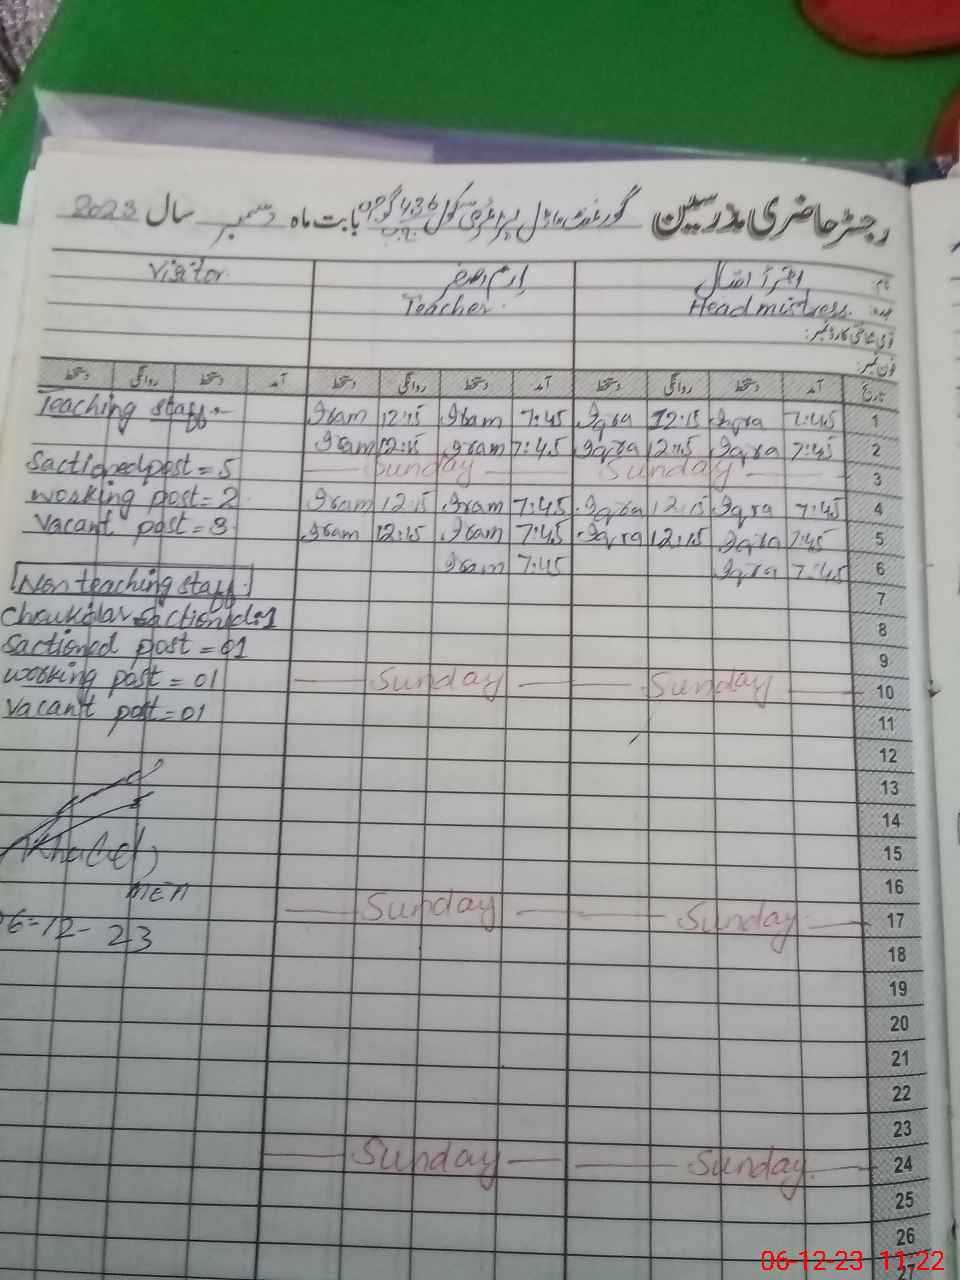 رجسٹر حاضری مدرسین گورنمنٹ ماڈل پرائمری سکول 436 گ ب بابت ماہ دسمبر سال 2023
نام اقراء Visitor
عہدہ: Headmistress. Teacher.
قومی شناختی کارڈ نمبر:
فون نمبر:
تاریخ آمد دستخط روانگی دستخط آمد دستخط روانگی دستخط آمد دستخط روانگی دستخط
1 7:45 Iqra 12:15 Iqra 7:45 Iram 12:15 Iram
2 7:45 Iqra 12:15 Iqra 7:45 Iram 12:15 Iram
3 Sunday Sunday
4 7:45 Iqra 12:15 Iqra 7:45 Iram 12:15 Iram
5 7:45 Iqra 12:15 Iqra 7:45 Iram 12:15 Iram
6 7:45 Iqra 7:45 Iram
7
8
9
10 Sunday Sunday
11
12
13
14
15
16
17 Sunday Sunday
18
19
20
21
22
23
24 Sunday Sunday
25
26
27
Teaching staff:-
Sactioned post = 5
working post = 2
Vacant post = 3
Non teaching staff
Sactioned post = 01
working post = 01
Vacant post = 01
MEA
06-12-23
06-12-23 11:22